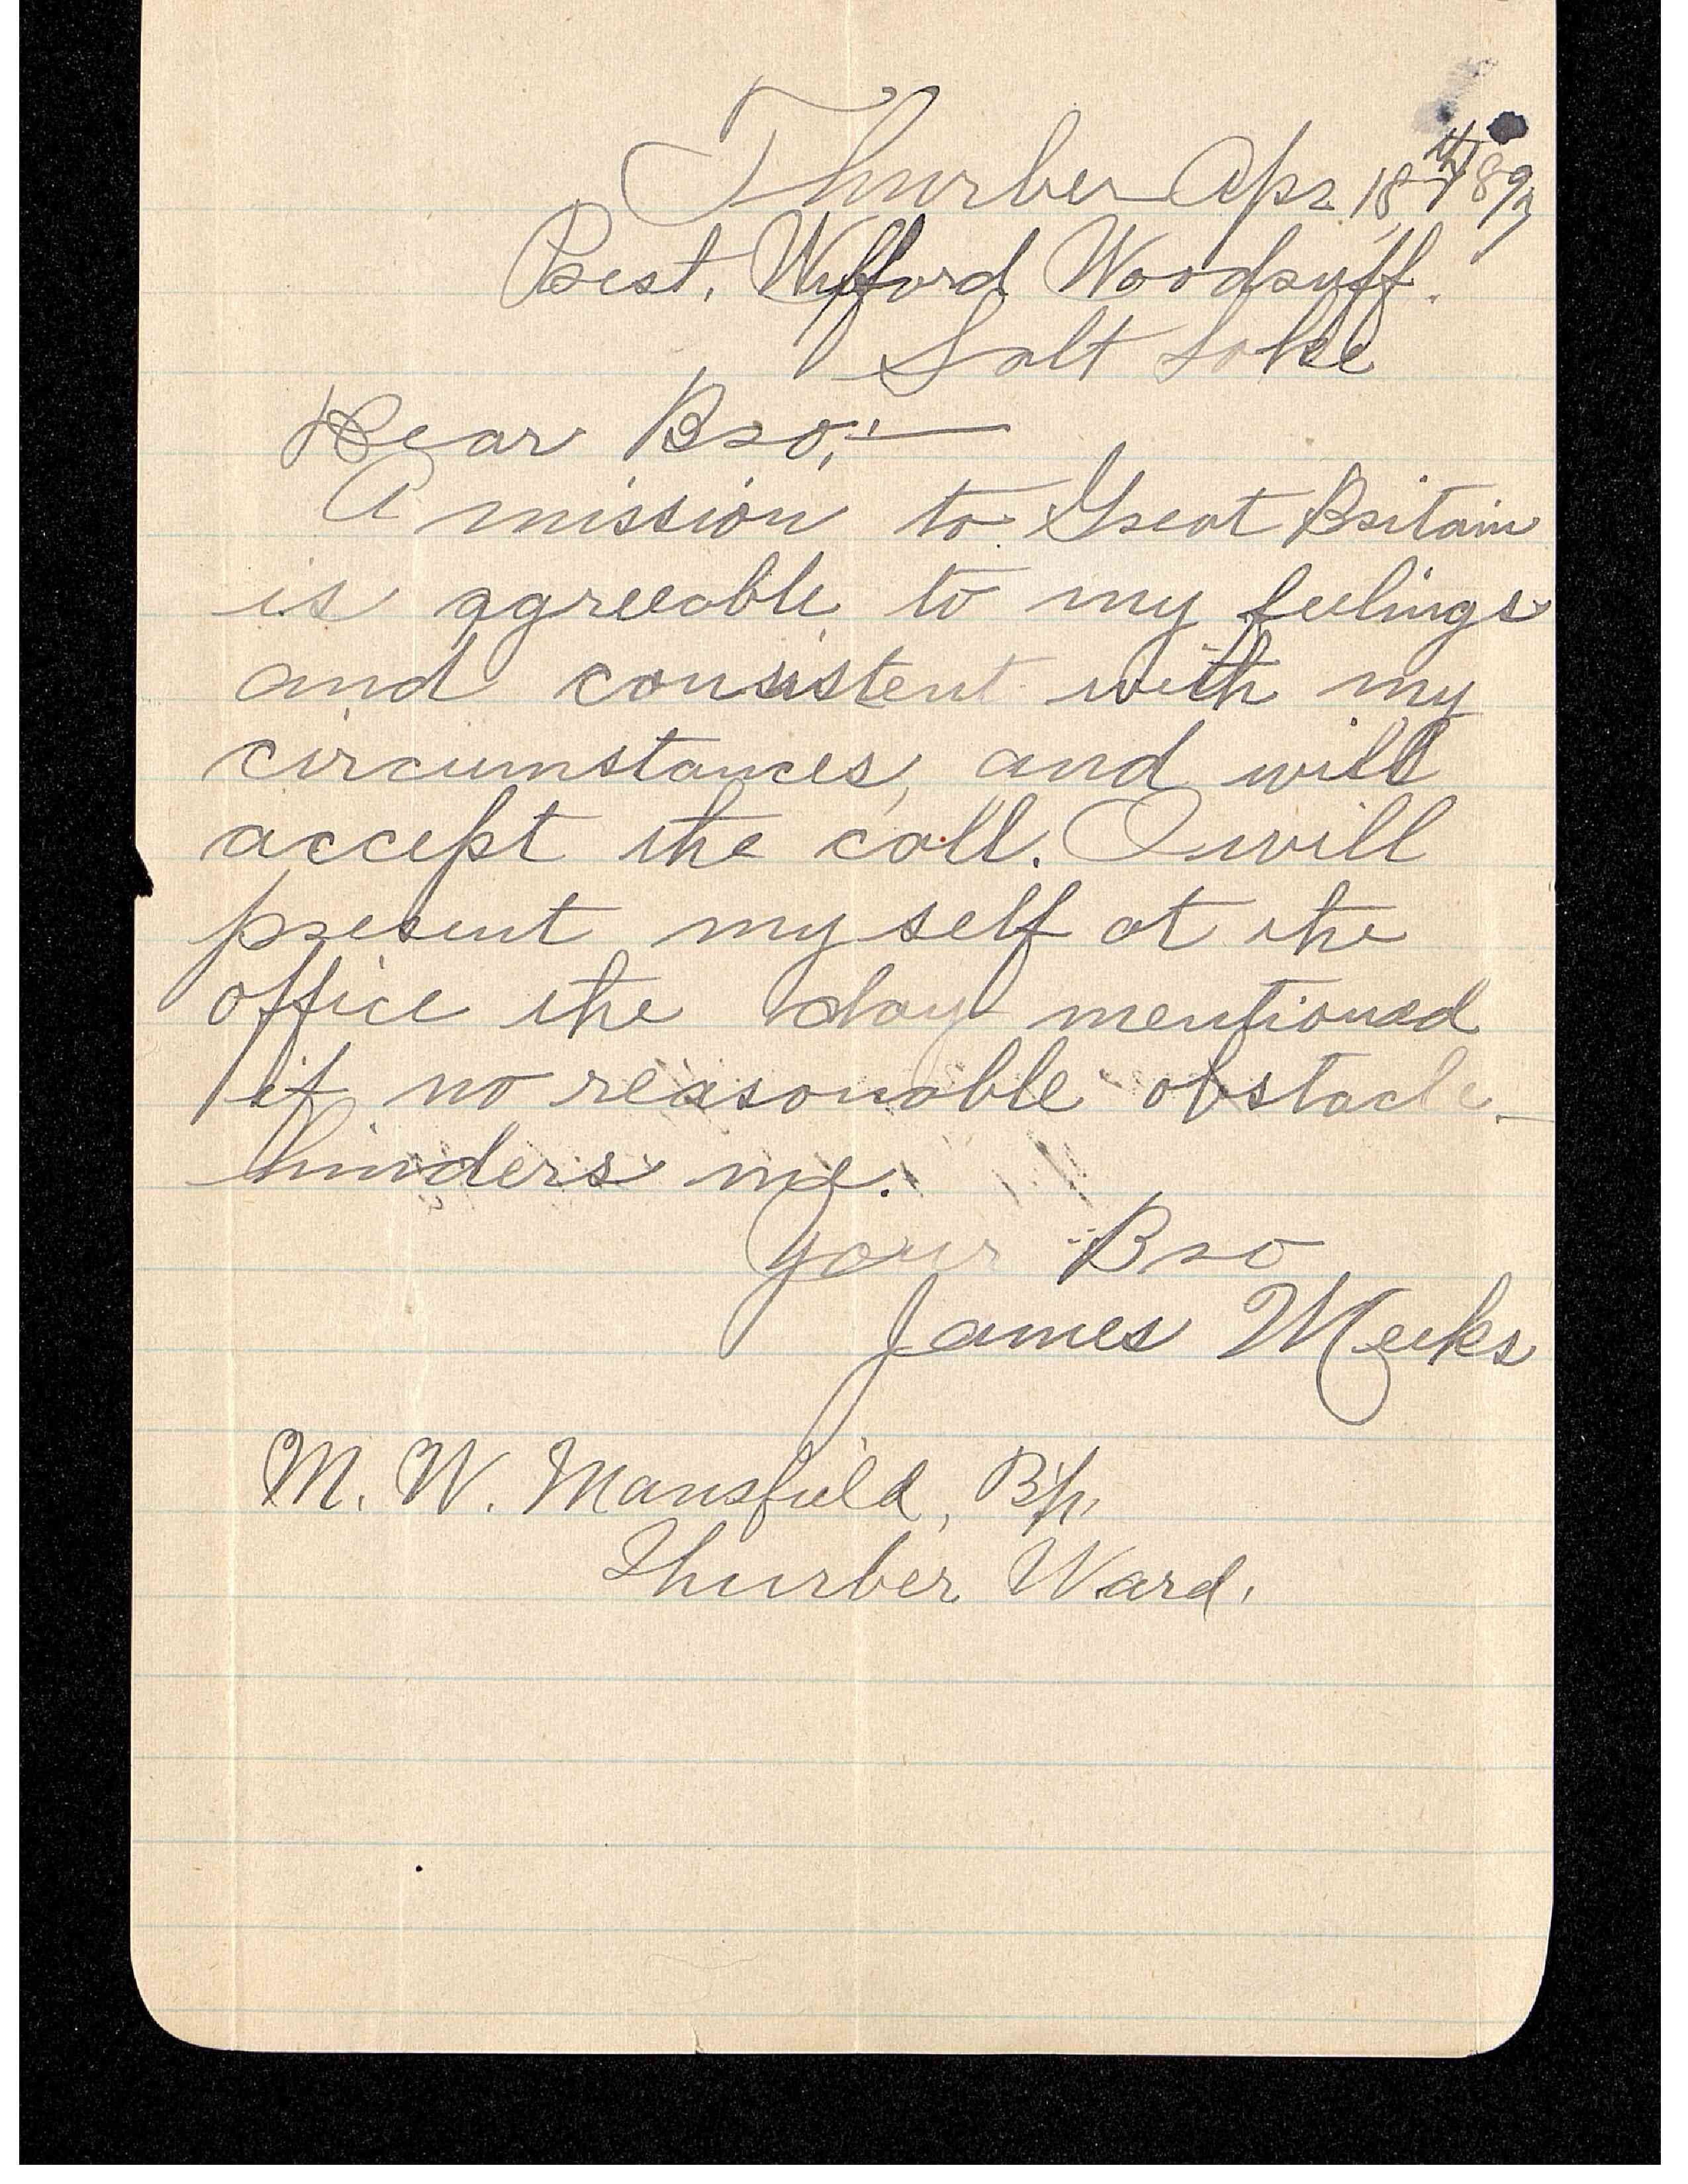 Thurber Apr 18th 1893
Prest. Wilford Woodruff.
Salt Lake
Dear Bro;—
A mission to Great Britain
is agreeable to my feelings
and consistent with my
circumstances, and will
accept the call. I will
present my self at the
office the day mentioned
if no reasonable obstacle
hinders me.
Your Bro
James Meeks
M. W. Mansfield, Bp,
Thurber Ward.